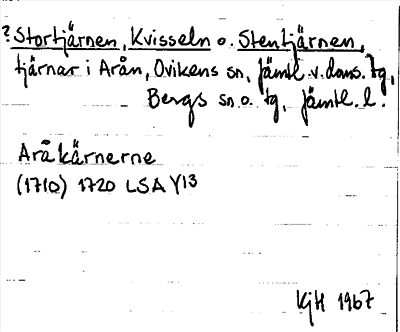 ? Stortjärnen, Kvisseln o. Stentjärnen,
tjärnar i Arån, Ovikens sn, Jämtl. v. doms. tg,
Bergs sn o. tg, Jämtl. l.
Aråkärnerne
(1710) 1720 LSA Y13
KjH 1967